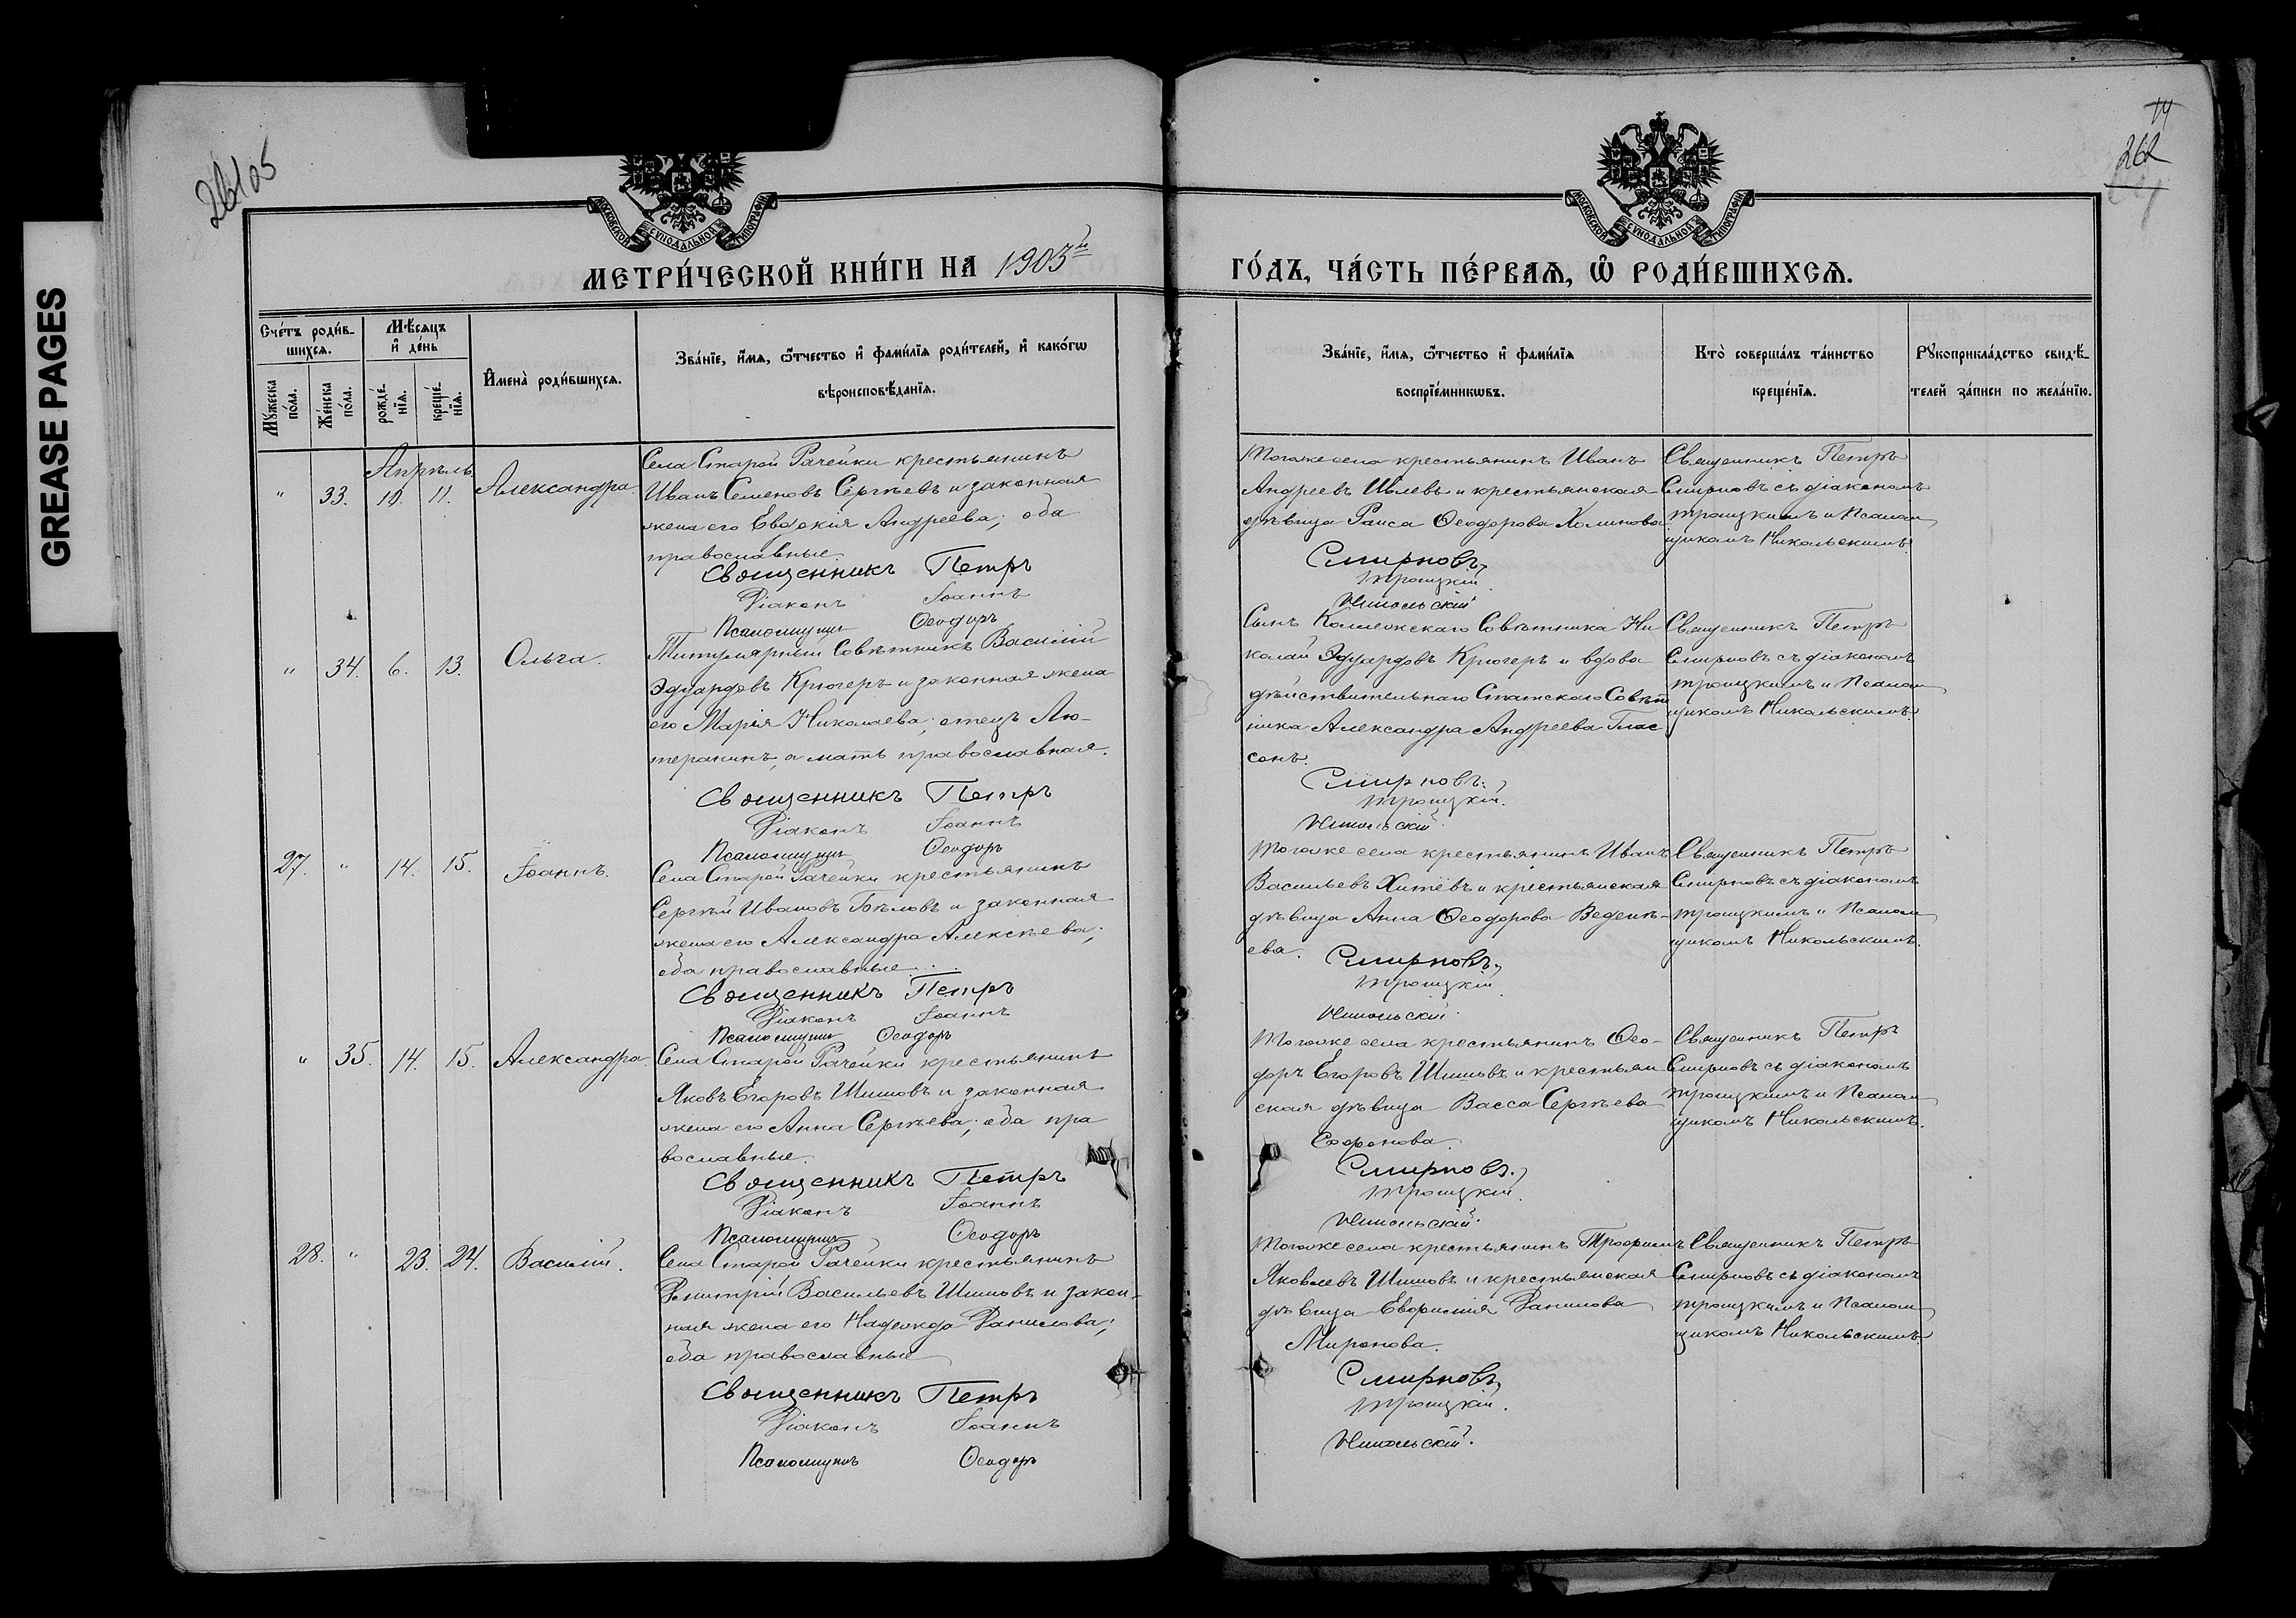 GREASE PAGES
14
262
МОСКОВСКОЙ СУНОДАЛЬНОЙ ТИПОГРАФIИ
МОСКОВСКОЙ СУНОДАЛЬНОЙ ТИПОГРАФIИ
МЕТРИ́ЧЕСКОЙ КНИ́ГИ НА 1903й
ГО́ДЪ, ЧА́СТЬ ПЕ́РВАѦ, Ѡ҆ РОДИ́ВШИХСѦ.
Сче́тъ роди́в-
шихсѧ.
Мѣ́сѧцъ
и҆ де́нь
Мꙋ́жеска
по́ла.
Же́нска
по́ла.
рожде́-
нїѧ.
креще́-
нїѧ.
И҆мена̀ роди́вшихсѧ.
Зва́нїе, и҆́мѧ, ѻ҆́тчество и҆ фами́лїѧ роди́телей, и҆ како́гѡ
вѣроисповѣ́данїѧ.
Зва́нїе, и҆́мѧ, ѻ҆́тчество и҆ фами́лїѧ
воспрїе́мникѡвъ.
Кто̀ соверша́лъ та́инство
креще́нїѧ.
Рꙋкоприкла́дство свидѣ́-
телей за́писи по жела́нїю.
Апрѣль
" 33. 10. 11. Александра.
Села Старой Рачейки крестьянинъ
Иванъ Семеновъ Сергѣевъ и законная
жена его Евдокія Андреева; оба
православные
Священникъ Петръ
Діаконъ Іоаннъ
Псаломщикъ Ѳеодоръ
Тогоже села крестьянинъ Иванъ
Андреевъ Ивлевъ и крестьянская
дѣвица Раиса Ѳеодорова Холинова
Смирновъ,
Троицкій
Никольскій
Священникъ Петръ
Смирновъ съ діакономъ
Троицкимъ и Псалом
щикомъ Никольскимъ.
" 34. 6. 13. Ольга.
Титулярный Совѣтникъ Василій
Эдуардовъ Крюгеръ и законная жена
его Марія Николаева; отецъ Лю-
теранинъ, а мать православная.
Священникъ Петръ
Діаконъ Іоаннъ
Псаломщикъ Ѳеодоръ
Сынъ Коллежскаго Совѣтника Ни
колай Эдуардовъ Крюгеръ и вдова
дѣйствительнаго Статскаго Совѣт
ника Александра Андреева Глас
сонъ.
Смирновъ,
Троицкій.
Никольскій
Священникъ Петръ
Смирновъ съ діакономъ
Троицкимъ и Псалом
щикомъ Никольскимъ.
27. " 14. 15. Іоаннъ.
Села Старой Рачейки крестьянинъ
Сергѣй Ивановъ Бѣловъ и законная
жена его Александра Алексѣева;
оба православные
Священникъ Петръ
Діаконъ Іоаннъ
Псаломщикъ Ѳеодоръ
Тогоже села крестьянинъ Иванъ
Васильевъ Хитёвъ и крестьянская
дѣвица Анна Ѳеодорова Веденѣ-
ева.
Смирновъ,
Троицкій
Никольскій.
Священникъ Петръ
Смирновъ съ діакономъ
Троицкимъ и Псалом
щикомъ Никольскимъ.
" 35. 14. 15. Александра.
Села Старой Рачейки крестьянинъ
Яковъ Егоровъ Шишовъ и законная
жена его Анна Сергѣева; оба пра
вославные.
Священникъ Петръ
Діаконъ Іоаннъ
Псаломщикъ Ѳеодоръ
Тогоже села крестьянинъ Ѳео-
доръ Егоровъ Шишовъ и крестьян
ская дѣвица Васса Сергѣева
Софронова.
Смирновъ,
Троицкій.
Никольскій.
Священникъ Петръ
Смирновъ съ діакономъ
Троицкимъ и Псалом
щикомъ Никольскимъ.
28. " 23. 24. Василій.
Села Старой Рачейки крестьянинъ
Димитрій Васильевъ Шишовъ и закон-
ная жена его Надежда Данилова;
оба православные
Священникъ Петръ
Діаконъ Іоаннъ
Псаломщикъ Ѳеодоръ
Тогоже села крестьянинъ Трофимъ
Яковлевъ Шишовъ и крестьянская
дѣвица Евфимія Данилова
Миронова.
Смирновъ,
Троицкій.
Никольскій.
Священникъ Петръ
Смирновъ съ діакономъ
Троицкимъ и Псалом
щикомъ Никольскимъ.